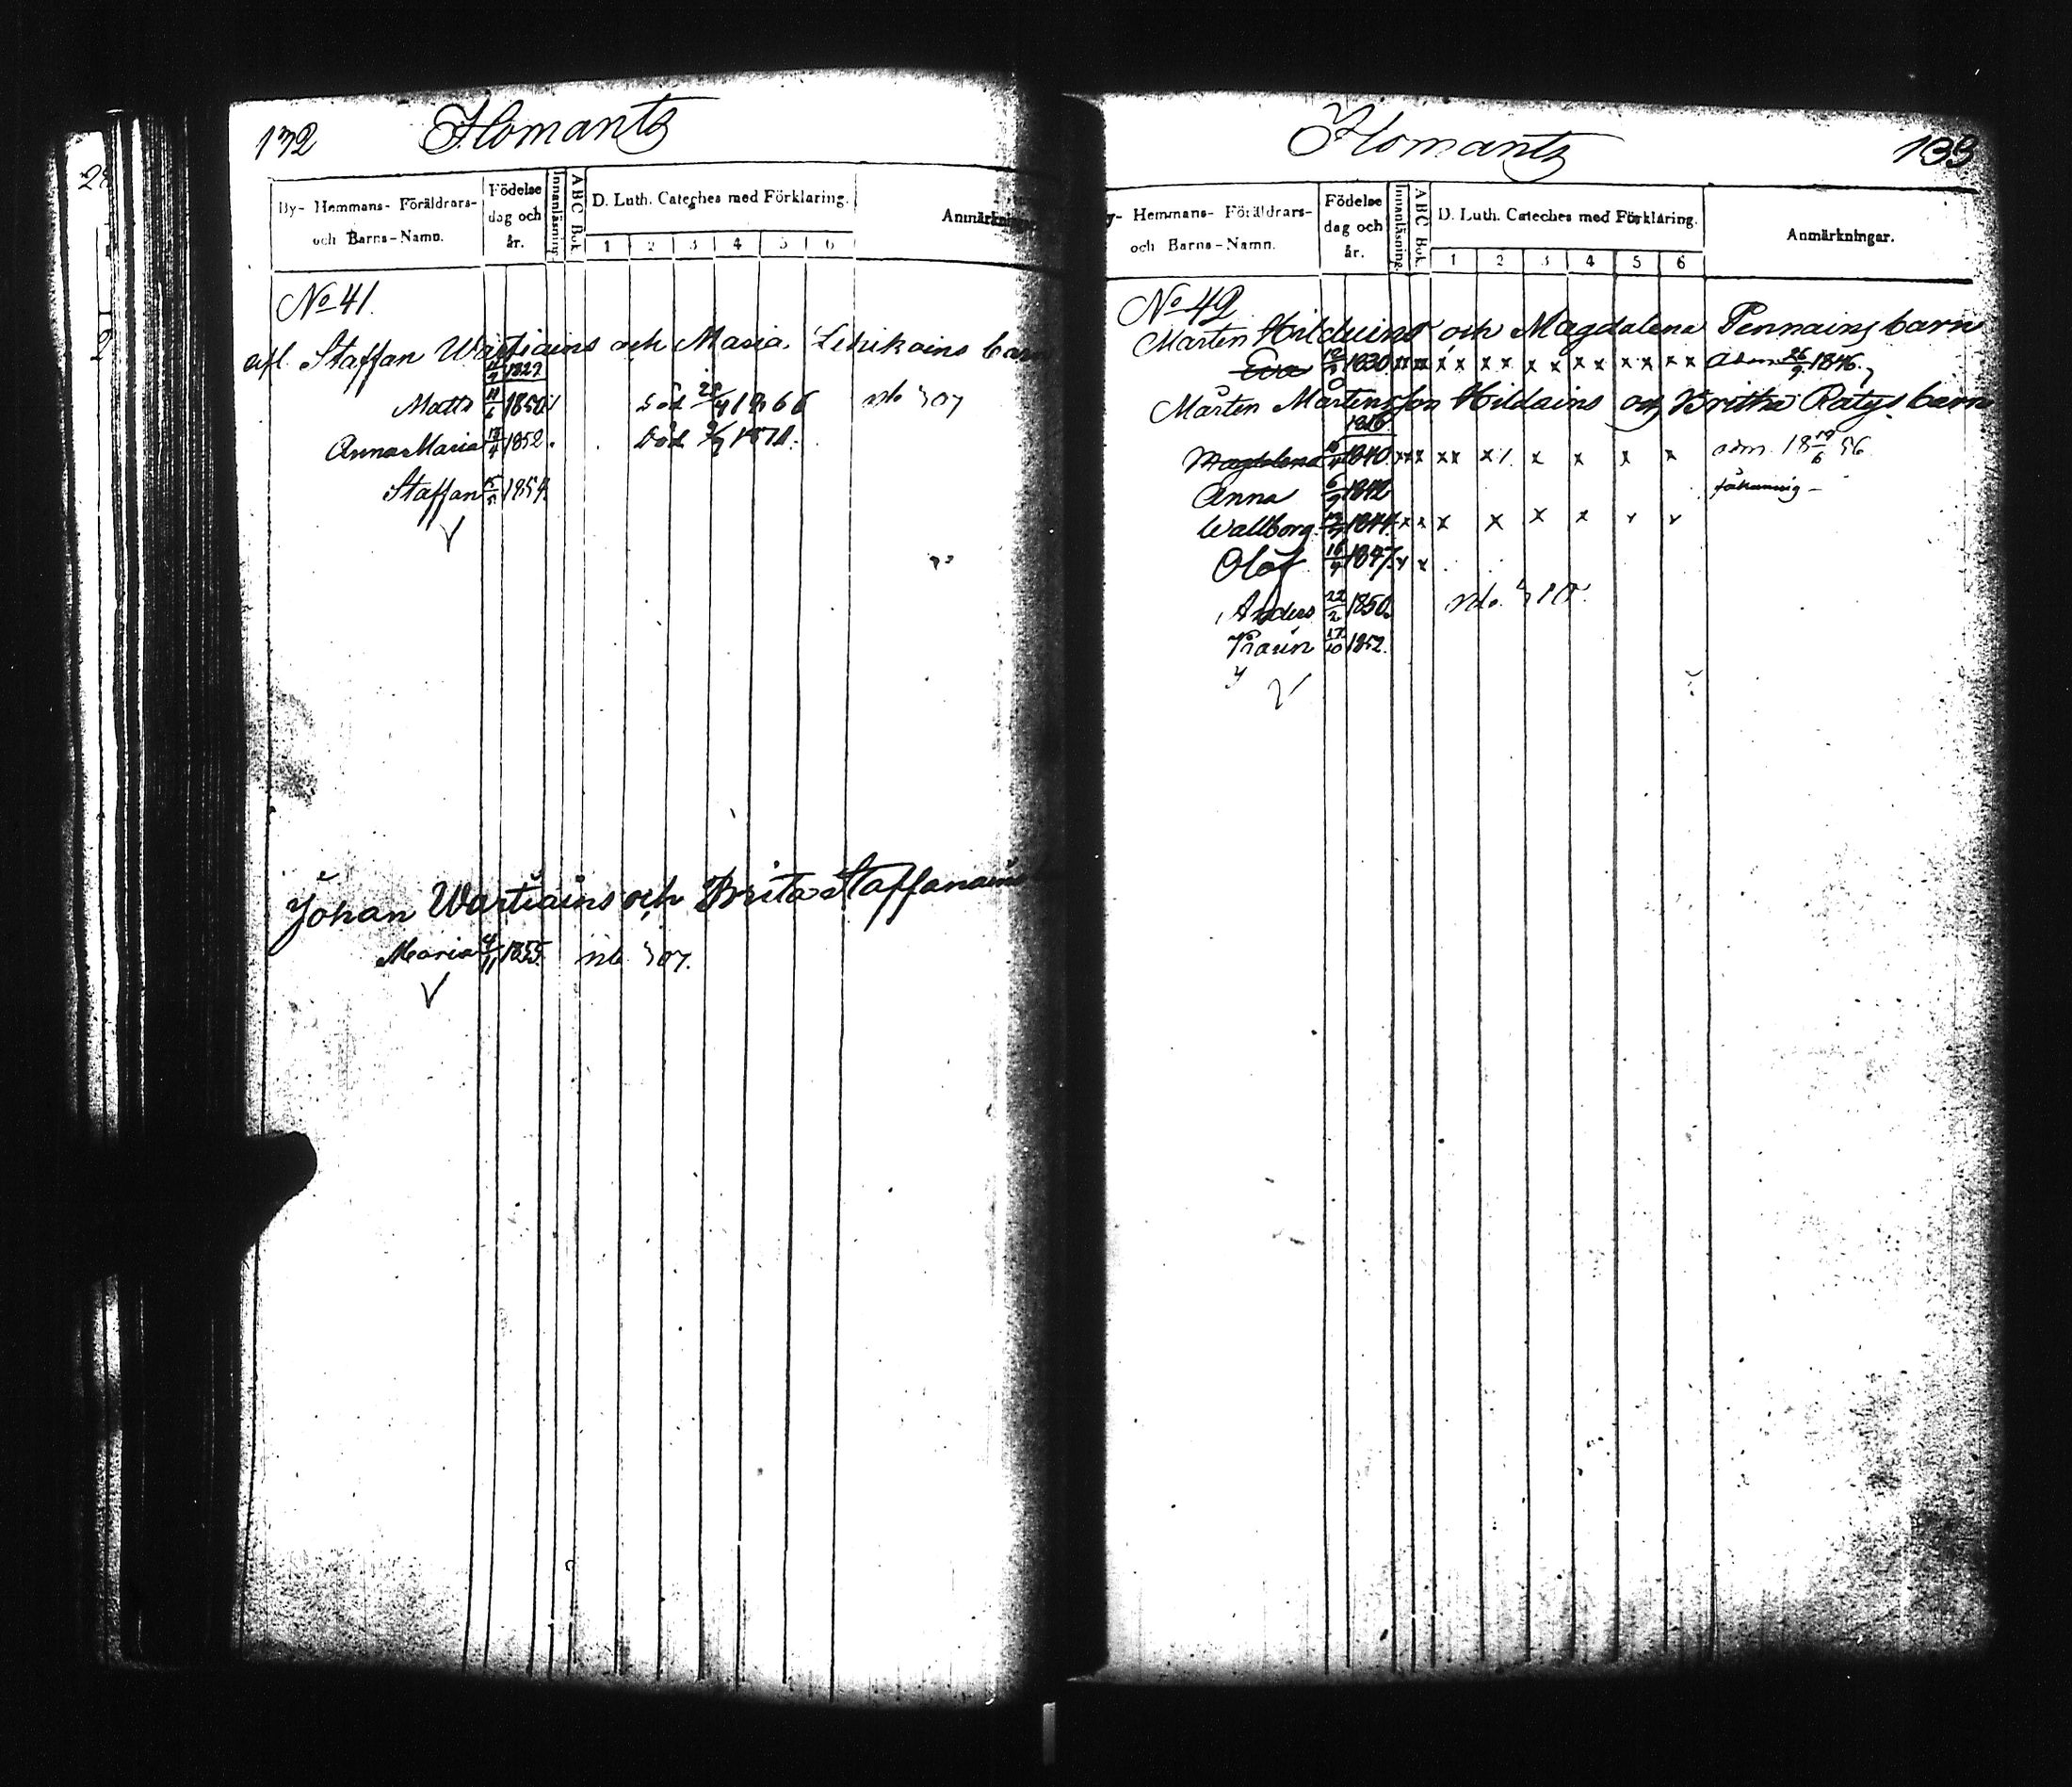 132 Ilomants
By- Hemmans- Föräldrars- och Barns-Namn. Födelse dag och år. Innanläsning. ABC Bok. D. Luth. Cateches med Förklaring. 1 2 3 4 5 6
No 41.
afl. Staffan Wartiains och Maria Lehikoins barn
1827
Matts 11/6 1850 död 1866 307
Anna Maria 1852. död 1871.
Staffan 1854
Johan Wartiains och Brita Staffanains
Maria 1855 307.
Ilomants 133
Hemmans- Föräldrars- och Barns-Namn. Födelse dag och år. Innanläsning. ABC Bok. D. Luth. Cateches med Förklaring. 1 2 3 4 5 6 Anmärkningar.
No 42
Mårten Hilduins och Magdalena Pennains barn
Eva 1830 x x x x x x x x x x x x adm 26/9 1846.
Mårten Mårtensson Hildains og Britha Rätys barn
1816
Magdalena 1840 x x x x x x x x adm. 18 19/6 56
Anna 6/9 1842
Wallborg 1844 x x x x x x
Olof 16/9 1847 x x
Anders 22/2 1850. 310.
Karin 17/10 1852.